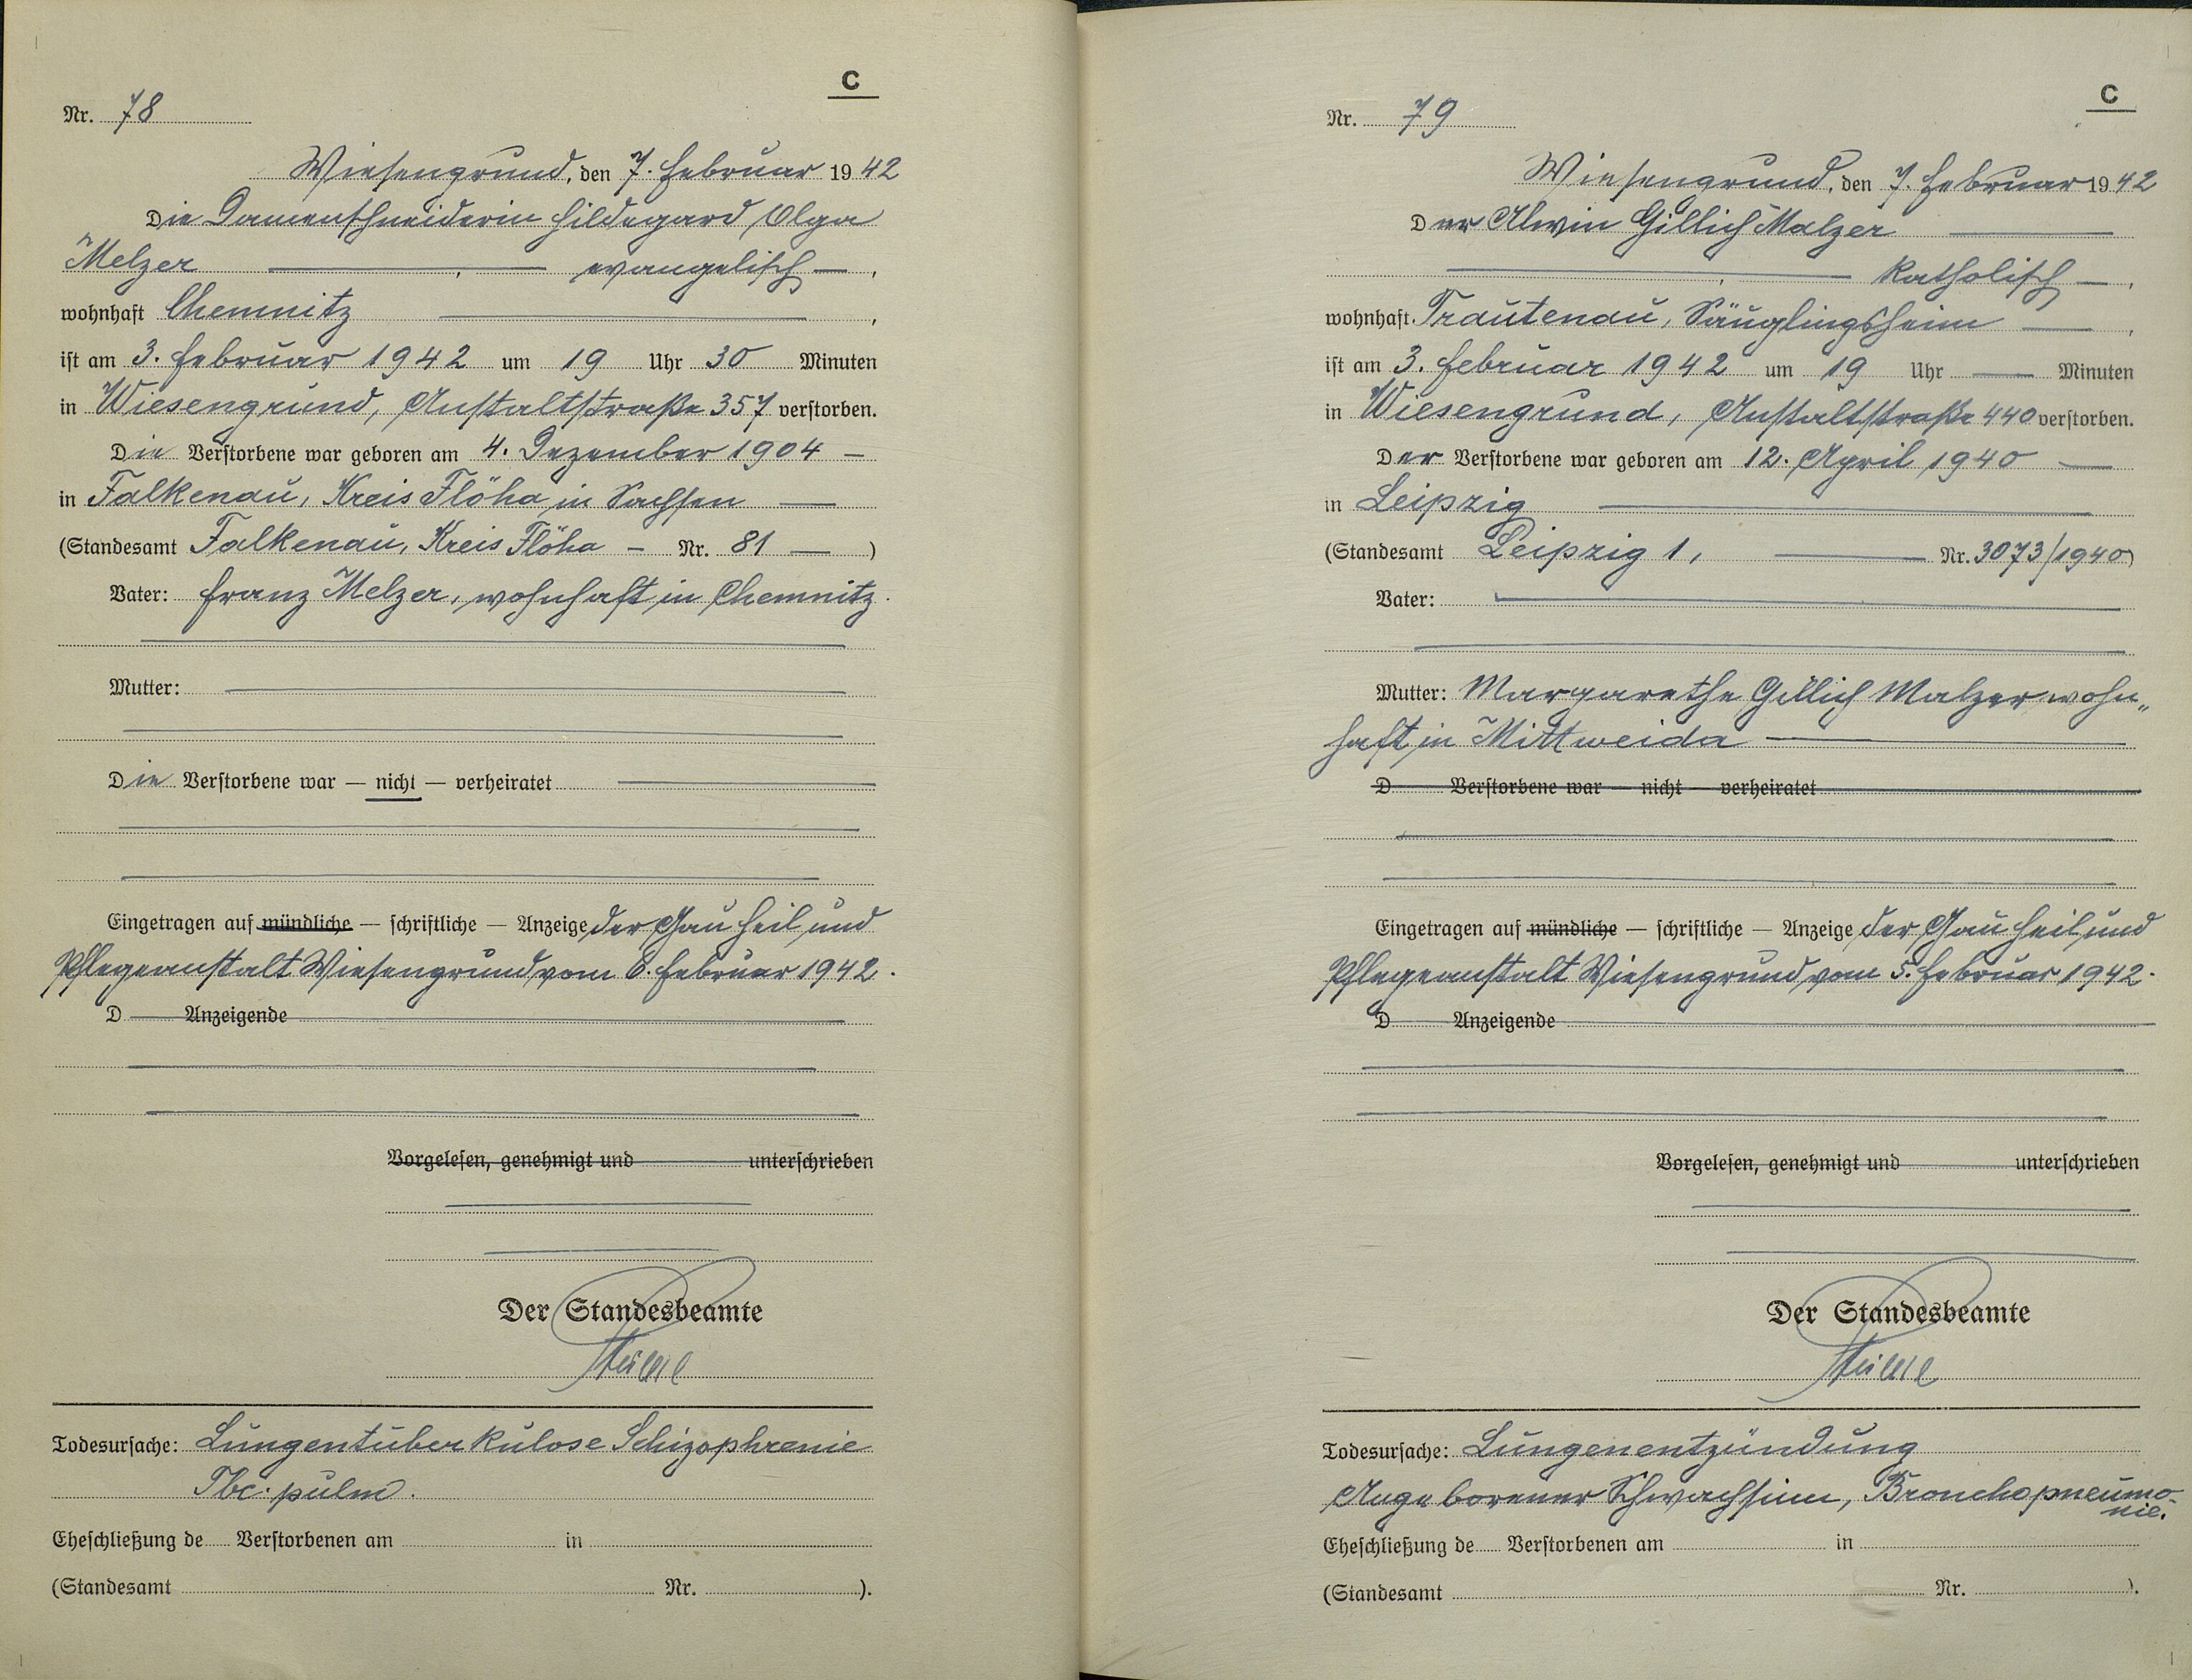 C
Nr. 78
Wiesengrund, den 7. Februar 1942
Die Damenschneiderin Hildegard Olga
Melzer — , — evangelisch — ,
wohnhaft Chemnitz — ,
ist am 3. Februar 1942 um 19 Uhr 30 Minuten
in Wiesengrund, Anstaltstraße 357 verstorben.
Die Verstorbene war geboren am 4. Dezember 1904 —
in Falkenau, Kreis Flöha in Sachsen —
(Standesamt Falkenau, Kreis Flöha — Nr. 81 — )
Vater: Franz Melzer, wohnhaft in Chemnitz.
Mutter: —
Die Verstorbene war — nicht — verheiratet —
Eingetragen auf mündliche — schriftliche — Anzeige der Gau Heil und
Pflegeanstalt Wiesengrund vom 6. Februar 1942.
D Anzeigende
Vorgelesen, genehmigt und unterschrieben
Der Standesbeamte
Todesursache: Lungentuberkulose Schizophrenie
Tbc. pulm.
Eheschließung de Verstorbenen am in
(Standesamt Nr. ).
C
Nr. 79
Wiesengrund, den 7. Februar 1942
Der Alwin Gillich Malzer —
— , — katholisch — ,
wohnhaft Trautenau, Säuglingsheim — ,
ist am 3. Februar 1942 um 19 Uhr — Minuten
in Wiesengrund, Anstaltstraße 440 verstorben.
Der Verstorbene war geboren am 12. April 1940 —
in Leipzig —
(Standesamt Leipzig 1, — Nr. 3073/1940)
Vater: —
Mutter: Margarethe Gillich Malzer wohn„
haft in Mittweida —
D Verstorbene war — nicht — verheiratet
Eingetragen auf mündliche — schriftliche — Anzeige der Gau Heil und
Pflegeanstalt Wiesengrund vom 5. Februar 1942.
D Anzeigende
Vorgelesen, genehmigt und unterschrieben
Der Standesbeamte
Todesursache: Lungenentzündung
Angeborener Schwachsinn, Bronchopneumo-
nie.
Eheschließung de Verstorbenen am in
(Standesamt Nr. ).